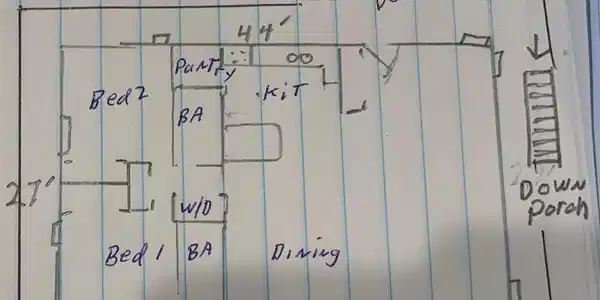 44'
Pantry
Kit
Bed 2
BA
27'
W/D
Down
Porch
Bed 1
BA
Dining